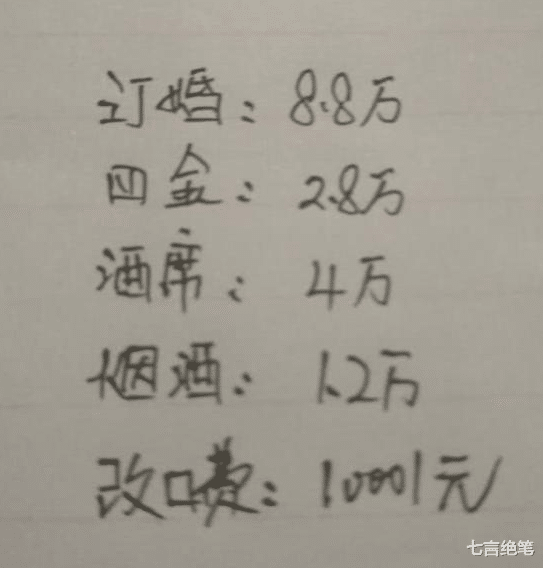 订婚：8.8万
四金：2.8万
酒席：4万
烟酒：1.2万
改口费：10001元
七言绝笔